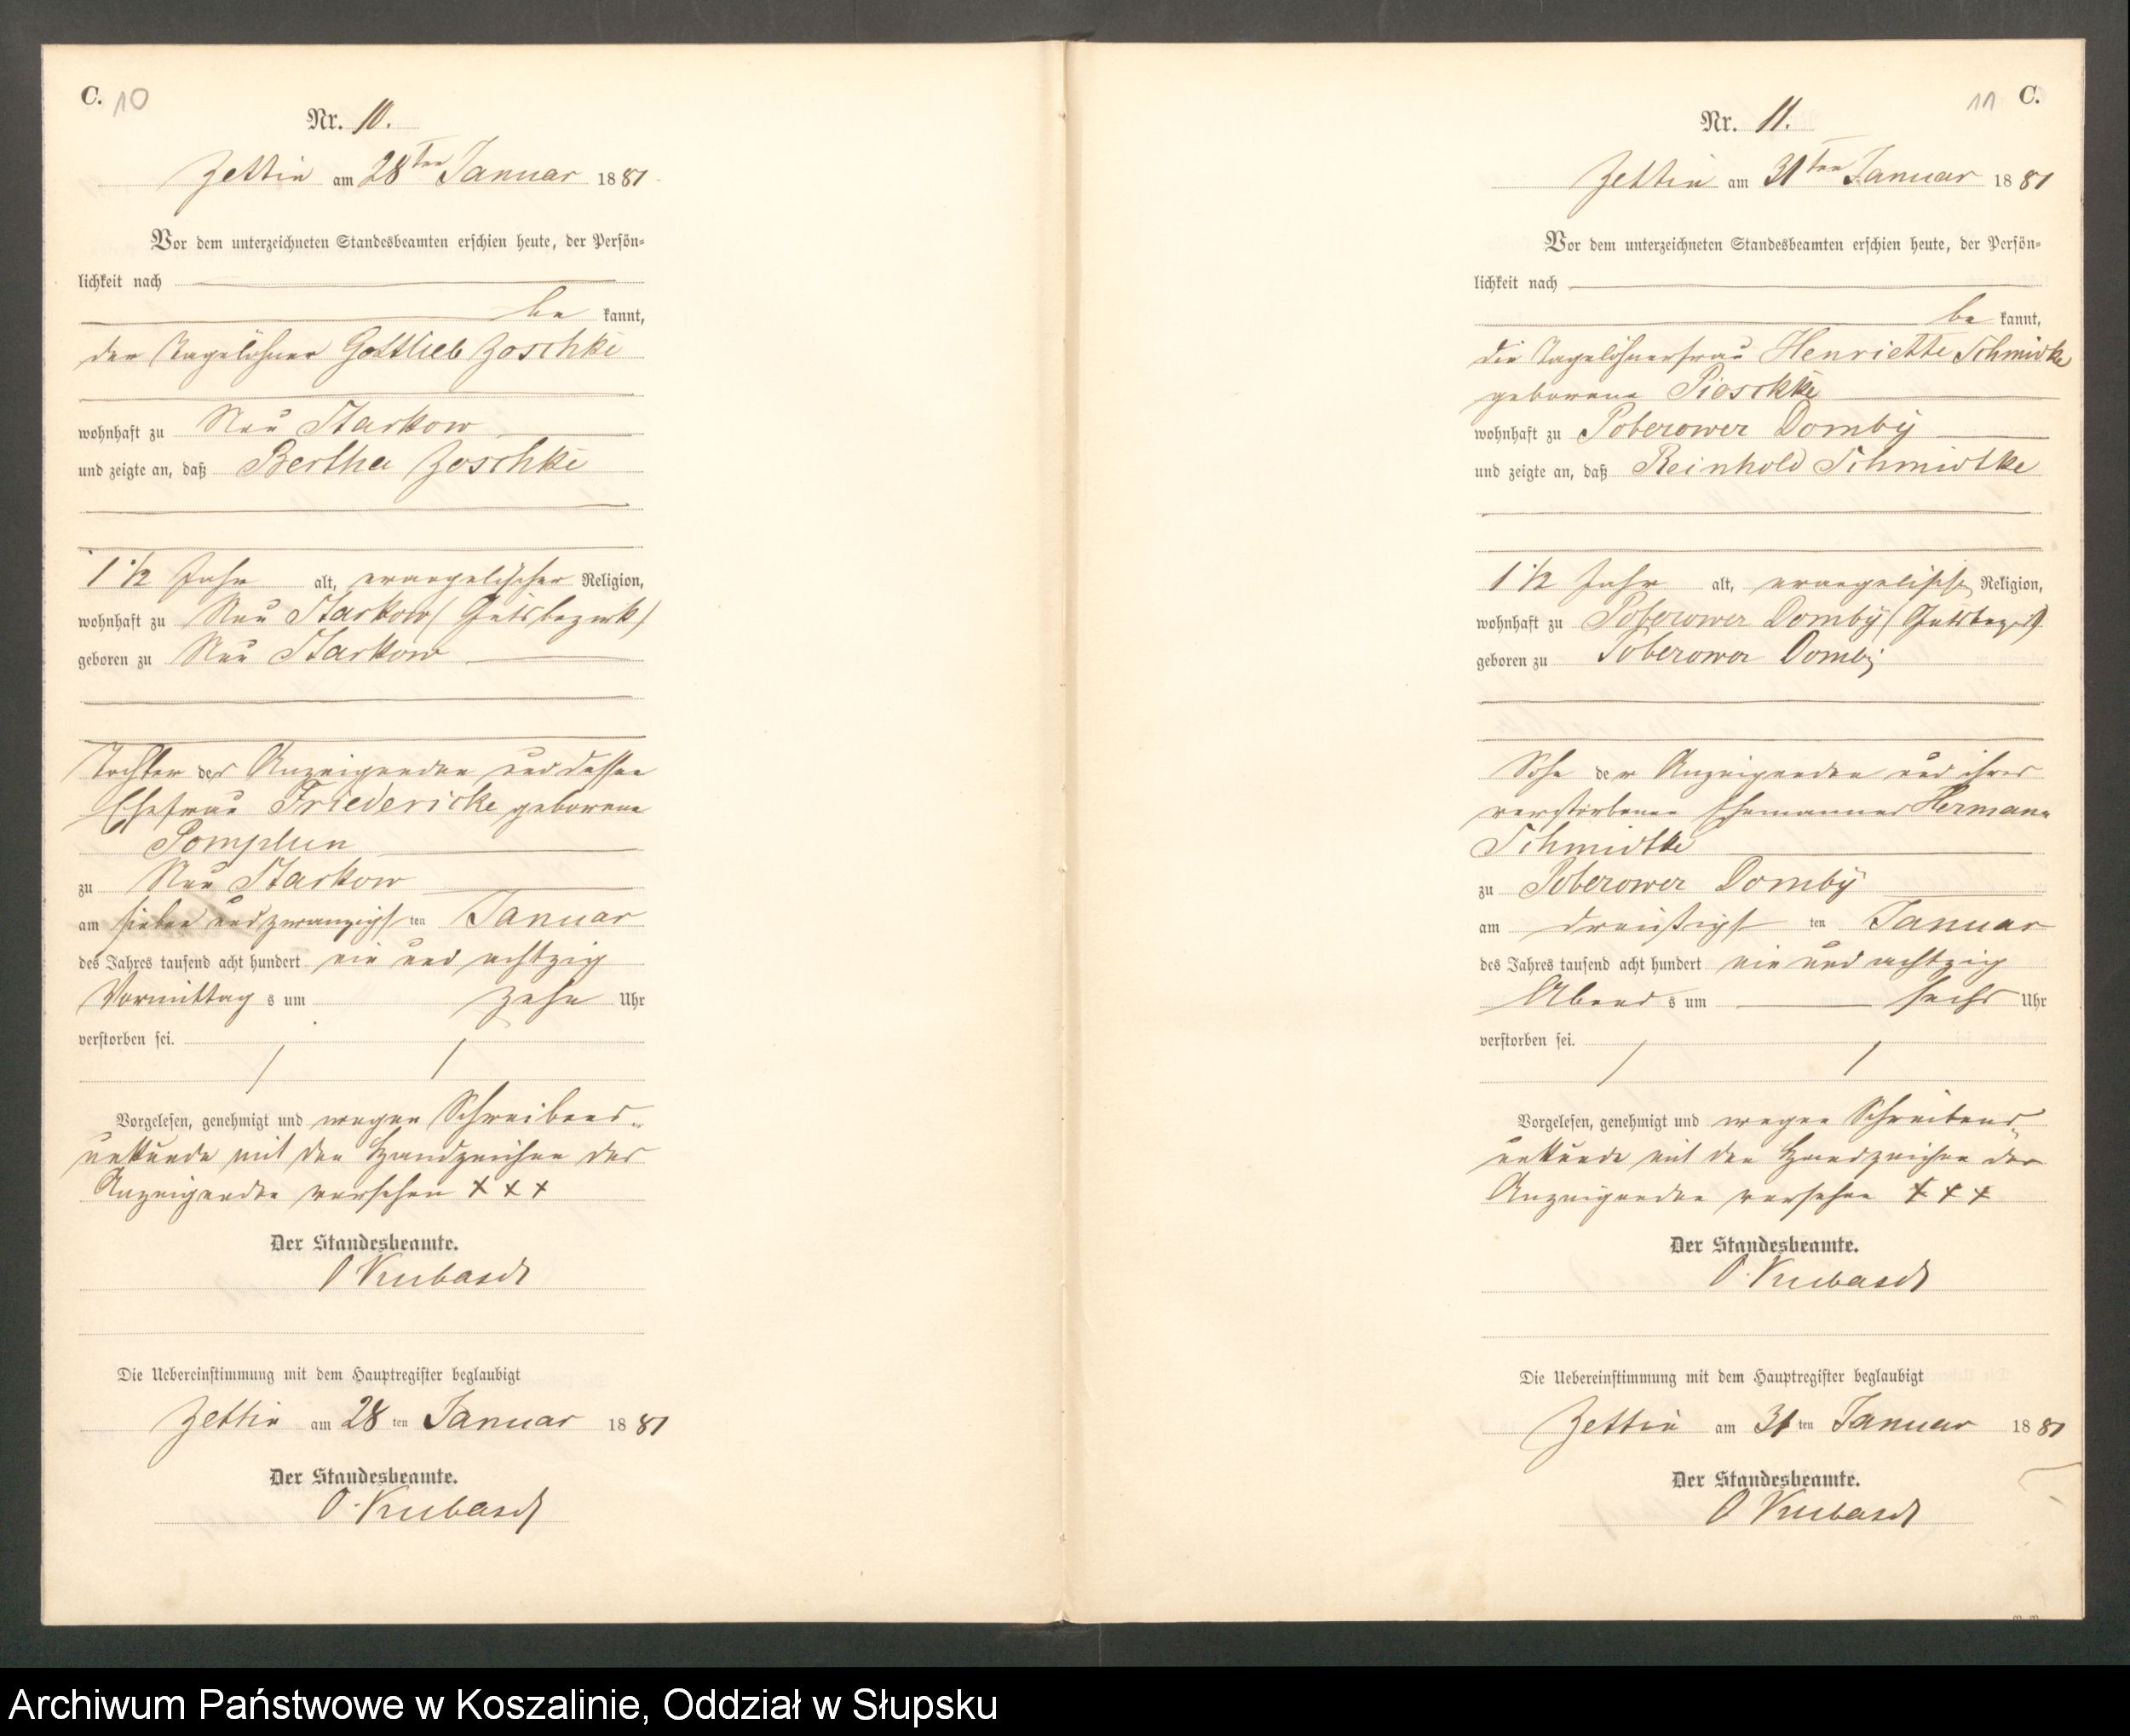 C. 10
Nr. 10.
Zettin am 28ten Januar 1881
Vor dem unterzeichneten Standesbeamten erschien heute, der Persön-
lichkeit nach
be kannt,
der Tagelöhner Gottlieb Zoschke
wohnhaft zu Neu Starkow
und zeigte an, daß Bertha Zoschke
1 1/2 Jahr alt, evangelischer Religion,
wohnhaft zu Neu Starkow (Gutsbezirk)
geboren zu Neu Starkow
Tochter des Anzeigenden und dessen
Ehefrau Friedericke geborene
Pomplun
zu Neu Starkow
am sieben und zwanzigsten Januar
des Jahres tausend acht hundert ein und achtzig
Vormittags um zehn Uhr
verstorben sei.
Vorgelesen, genehmigt und wegen Schreibens-
unkunde mit den Handzeichen des
Anzeigenden versehen + + +
Der Standesbeamte.
O Kubasch
Die Uebereinstimmung mit dem Hauptregister beglaubigt
Zettin am 28 ten Januar 1881
Der Standesbeamte.
O. Kubasch
11 C.
Nr. 11.
Zettin am 31ten Januar 1881
Vor dem unterzeichneten Standesbeamten erschien heute, der Persön-
lichkeit nach
be kannt,
die Tagelöhnerfrau Henriette Schmidtke
geborene
wohnhaft zu Poberower Domby
und zeigte an, daß Reinhold Schmidtke
1 1/2 Jahr alt, evangelischer Religion,
wohnhaft zu Poberower Domby (Gutsbezirk)
geboren zu Poberower Domby
Sohn der Anzeigenden und ihres
verstorbenen Ehemannes Hermann
Schmidtke
zu Poberower Domby
am dreißigsten Januar
des Jahres tausend acht hundert ein und achtzig
Abends um sechs Uhr
verstorben sei.
Vorgelesen, genehmigt und wegen Schreibens-
unkunde mit den Handzeichen der
Anzeigenden versehen + + +
Der Standesbeamte.
O. Kubasch
Die Uebereinstimmung mit dem Hauptregister beglaubigt
Zettin am 31 ten Januar 1881
Der Standesbeamte.
O Kubasch
Archiwum Państwowe w Koszalinie, Oddział w Słupsku